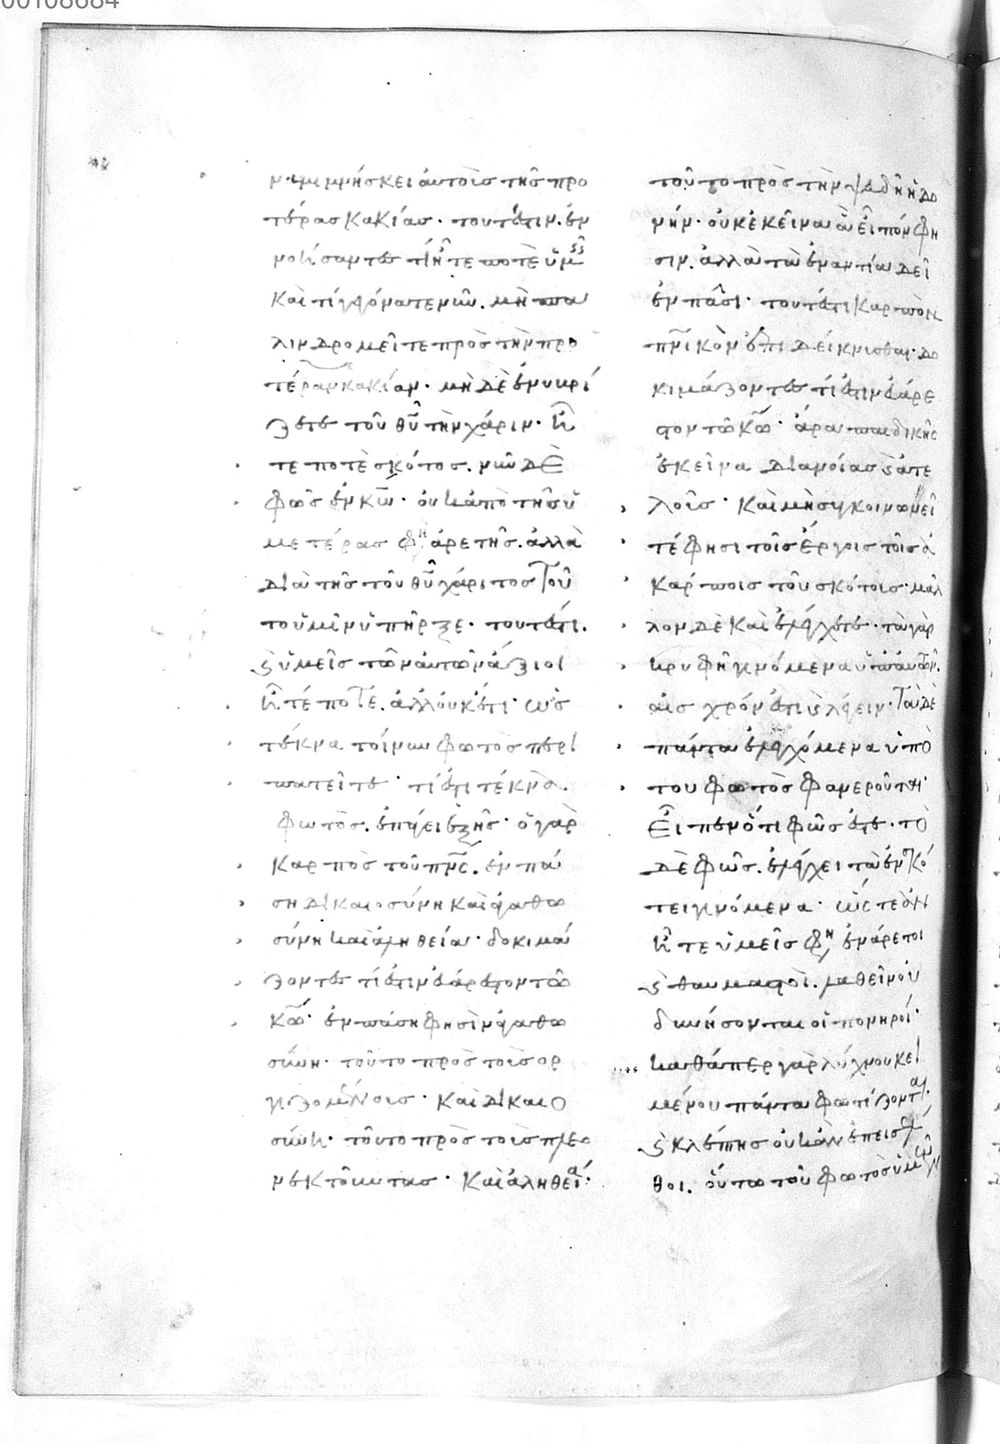 00108684
ν· ἀναμιμνήσκει αὐτοὺς τῆς προ
τέρας κακίας· τουτέστιν. ἐν
νοήσαντες τί ἦτε ποτὲ ὑμεῖς
καὶ τί γεγόνατε νῦν. μὴ πα
λινδρομεῖτε πρὸς τὴν προ
τέραν κακίαν· μὴ δὲ ἐνυβρί
ζετε τοῦ θῦ τὴν χάριν· ἦ
τε ποτὲ σκότος. νῦν δὲ
φῶς ἐν κω· οὐκ ἀπὸ τῆς ὑ
μετέρας φη ἀρετῆς. ἀλλὰ
διὰ τῆς τοῦ θῦ χάριτος τοῦ
το ὑμῖν ὑπῆρξε· τουτέστι.
καὶ ὑμεῖς τῶν αὐτῶν ἄξιοι
ἦτέ ποτε. ἀλλ' οὐκέτι· ὡς
τέκνα τοίνυν φωτὸς περι
πατεῖτε· τί ἐστι τέκνα
φωτὸς. ἐπάγει ἑξῆς· ὁ γὰρ
καρπὸς τοῦ πνς. ἐν πά
ση δικαιοσύνη καὶ ἀγαθω
σύνη καὶ ἀληθεία· δοκιμά
ζοντες τί ἐστιν εὐάρεστον τῶ
κω· ἐν πάση φησὶν ἀγαθω
σύνη· τοῦτο πρὸς τοὺς ορ
γιζομένους· καὶ δικαιο
σύνη· τοῦτο πρὸς τοὺς πλεο
νεκτοῦντας· καὶ ἀληθεία·
τοῦτο πρὸς τὴν ψευδῆ ἡδο
νήν· οὐκ ἐκεῖνα ἃ εἶπόν φη
σιν. ἀλλὰ τὰ ἐναντία δεῖ
ἐν πᾶσι· τουτέστι καρπὸν
πνικὸν ἐπιδείκνυσθαι· δο
κιμάζοντες τί ἐστιν εὐάρε
στον τῶ κω· ἄρα παιδικῆς
ἐκεῖνα διανοίας καὶ ἀτε
λοῦς· καὶ μὴ συγκοινωνεῖ
τέ φησι τοῖς ἔργοις τοῖς ἀ
κάρποις τοῦ σκότους· μᾶλ
λον δὲ καὶ ἐλέγχετε· τὰ γὰρ
κρυφῆ γινόμενα ὑπ' αὐτῶν.
αἰσχρόν ἐστι καὶ λέγειν· τὰ δὲ
πάντα ἐλεγχόμενα ὑπὸ
του φωτὸς φανεροῦται·
εἶπεν ὅτι φῶς ἐστε· τὸ
δὲ φῶς. ἐλέγχει τὰ ἐν σκό
τει γινόμενα· ὥστε ἐὰν
ἦτε ὑμεῖς φη, ἐνάρετοι
καὶ θαυμαστοὶ. λαθεῖν οὐ
δυνήσονται οἱ πονηροί·
καθάπερ γὰρ λύχνου κει
μένου πάντα φωτίζονται·
καὶ κλέπτης οὐκ ἂν ἐπεισέλ
θοι. οὕτω τοῦ φωτὸς ὑμῶν